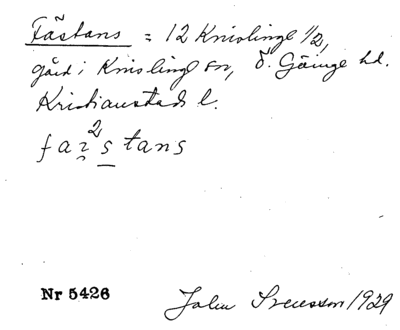 Fästans = 12 Knislinge 1/2,
gård i Knislinge sn, Ö. Göinge hd.
Kristianstads l.
fai²stans
Nr 5426
John Svensson 1929